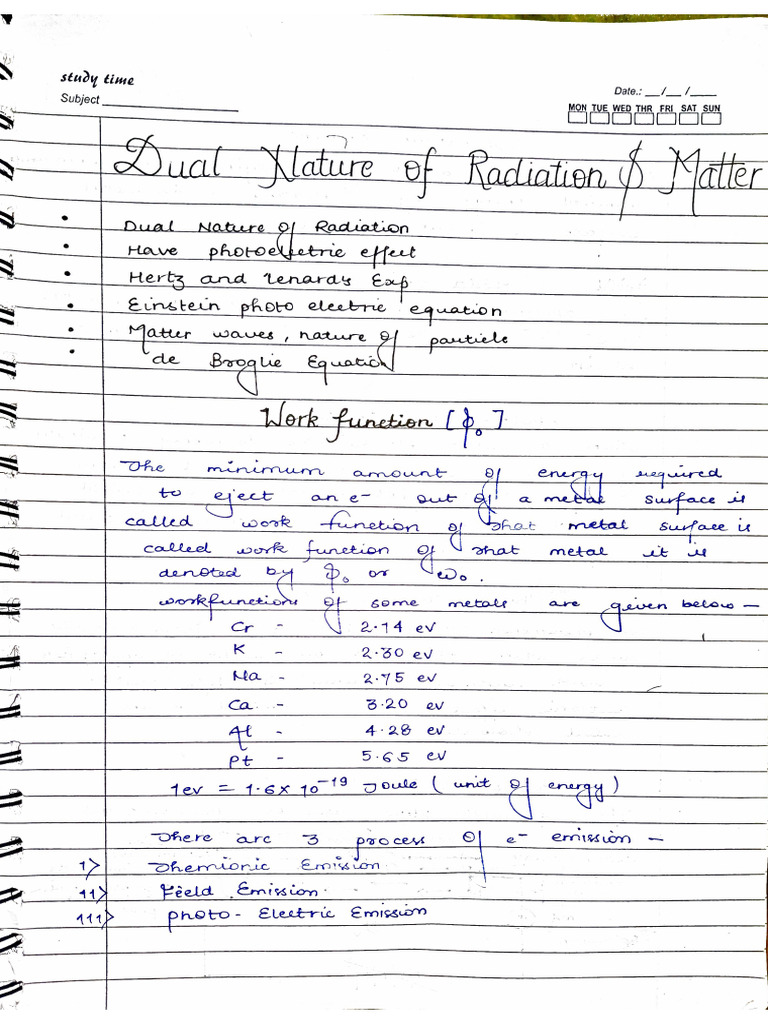 study time
Subject
Date.: __/__/____
MON TUE WED THR FRI SAT SUN
Dual Nature of Radiation & Matter
• Dual Nature of Radiation
• Have photoelectric effect
• Hertz and Lenard's Exp
• Einstein photo electric equation
• Matter waves, nature of particle
• de Broglie Equation
Work function [ϕ₀]
The minimum amount of energy required
to eject an e- out of a metal surface is
called work function of that metal surface is
called work function of that metal it is
denoted by ϕ₀ or ω₀.
workfunctions of some metals are given below —
Cr - 2.14 ev
K - 2.30 ev
Na - 2.75 ev
Ca - 3.20 ev
Al - 4.28 ev
Pt - 5.65 ev
1ev = 1.6 x 10⁻¹⁹ Joule (unit of energy)
There are 3 process of e⁻ emission —
1> Themionic Emission
11> Field Emission.
111> Photo-Electric Emission